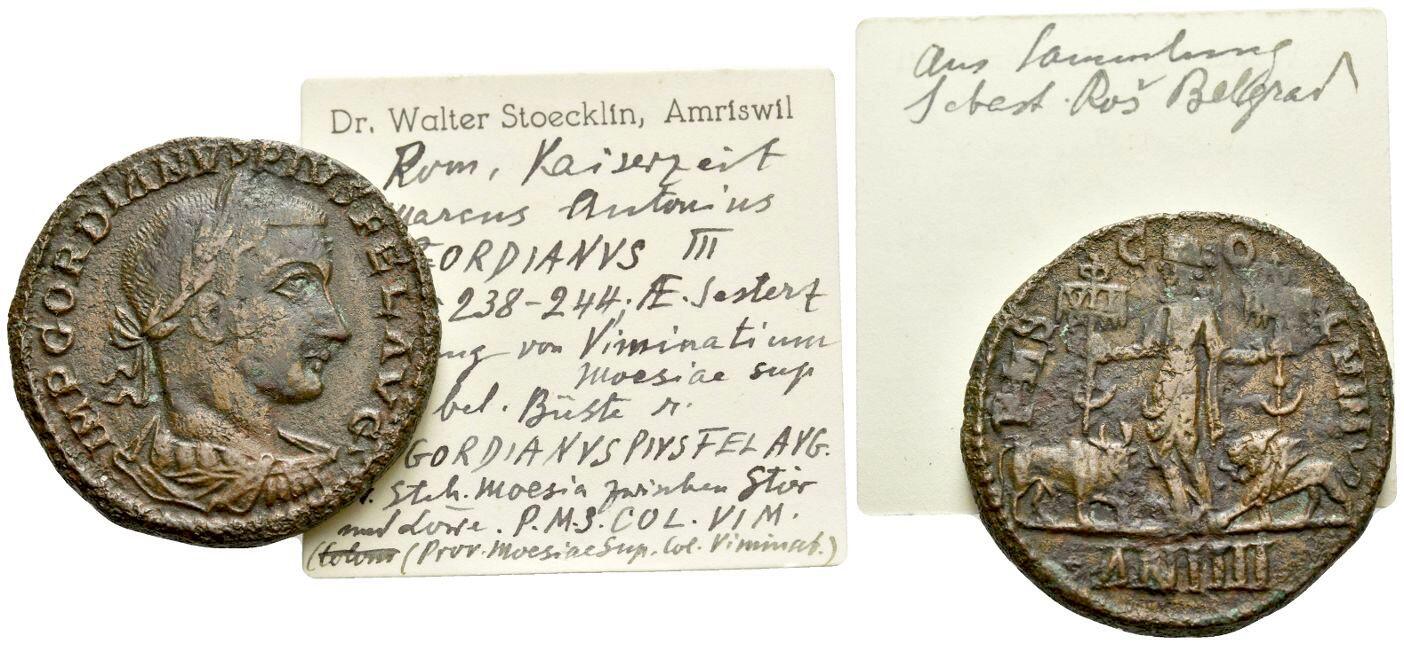 IMP GORDIANVS PIVS FEL AVG
Dr. Walter Stoecklin, Amriswil
Rom, Kaiserzeit
Marcus Antonius
GORDIANVS III
238-244, Æ. Sesterz
von Viminatium
Moesiae sup
bel. Büste r.
GORDIANVS PIVS FEL AVG.
Steh. Moesia zwischen Stier
und Löwe. P.M.S. COL. VIM.
(Prov. Moesiae Sup. Col. Viminat.)
aus Sammlung
Sebast. Roš Belgrad
P M S
C O
VII
AN IIII